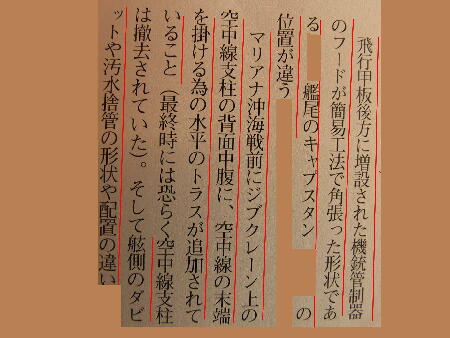 飛行甲板後方に増設された機銃管制器
のフードが簡易工法で角張った形状であ
る 艦尾のキャプスタン の
位置が違う
マリアナ沖海戦前にジブクレーン上の
空中線支柱の背面中腹に、空中線の末端
を掛ける為の水平のトラスが追加されて
いること（最終時には恐らく空中線支柱
は撤去されていた）。そして舷側のダビ
ットや汚水捨管の形状や配置の違い